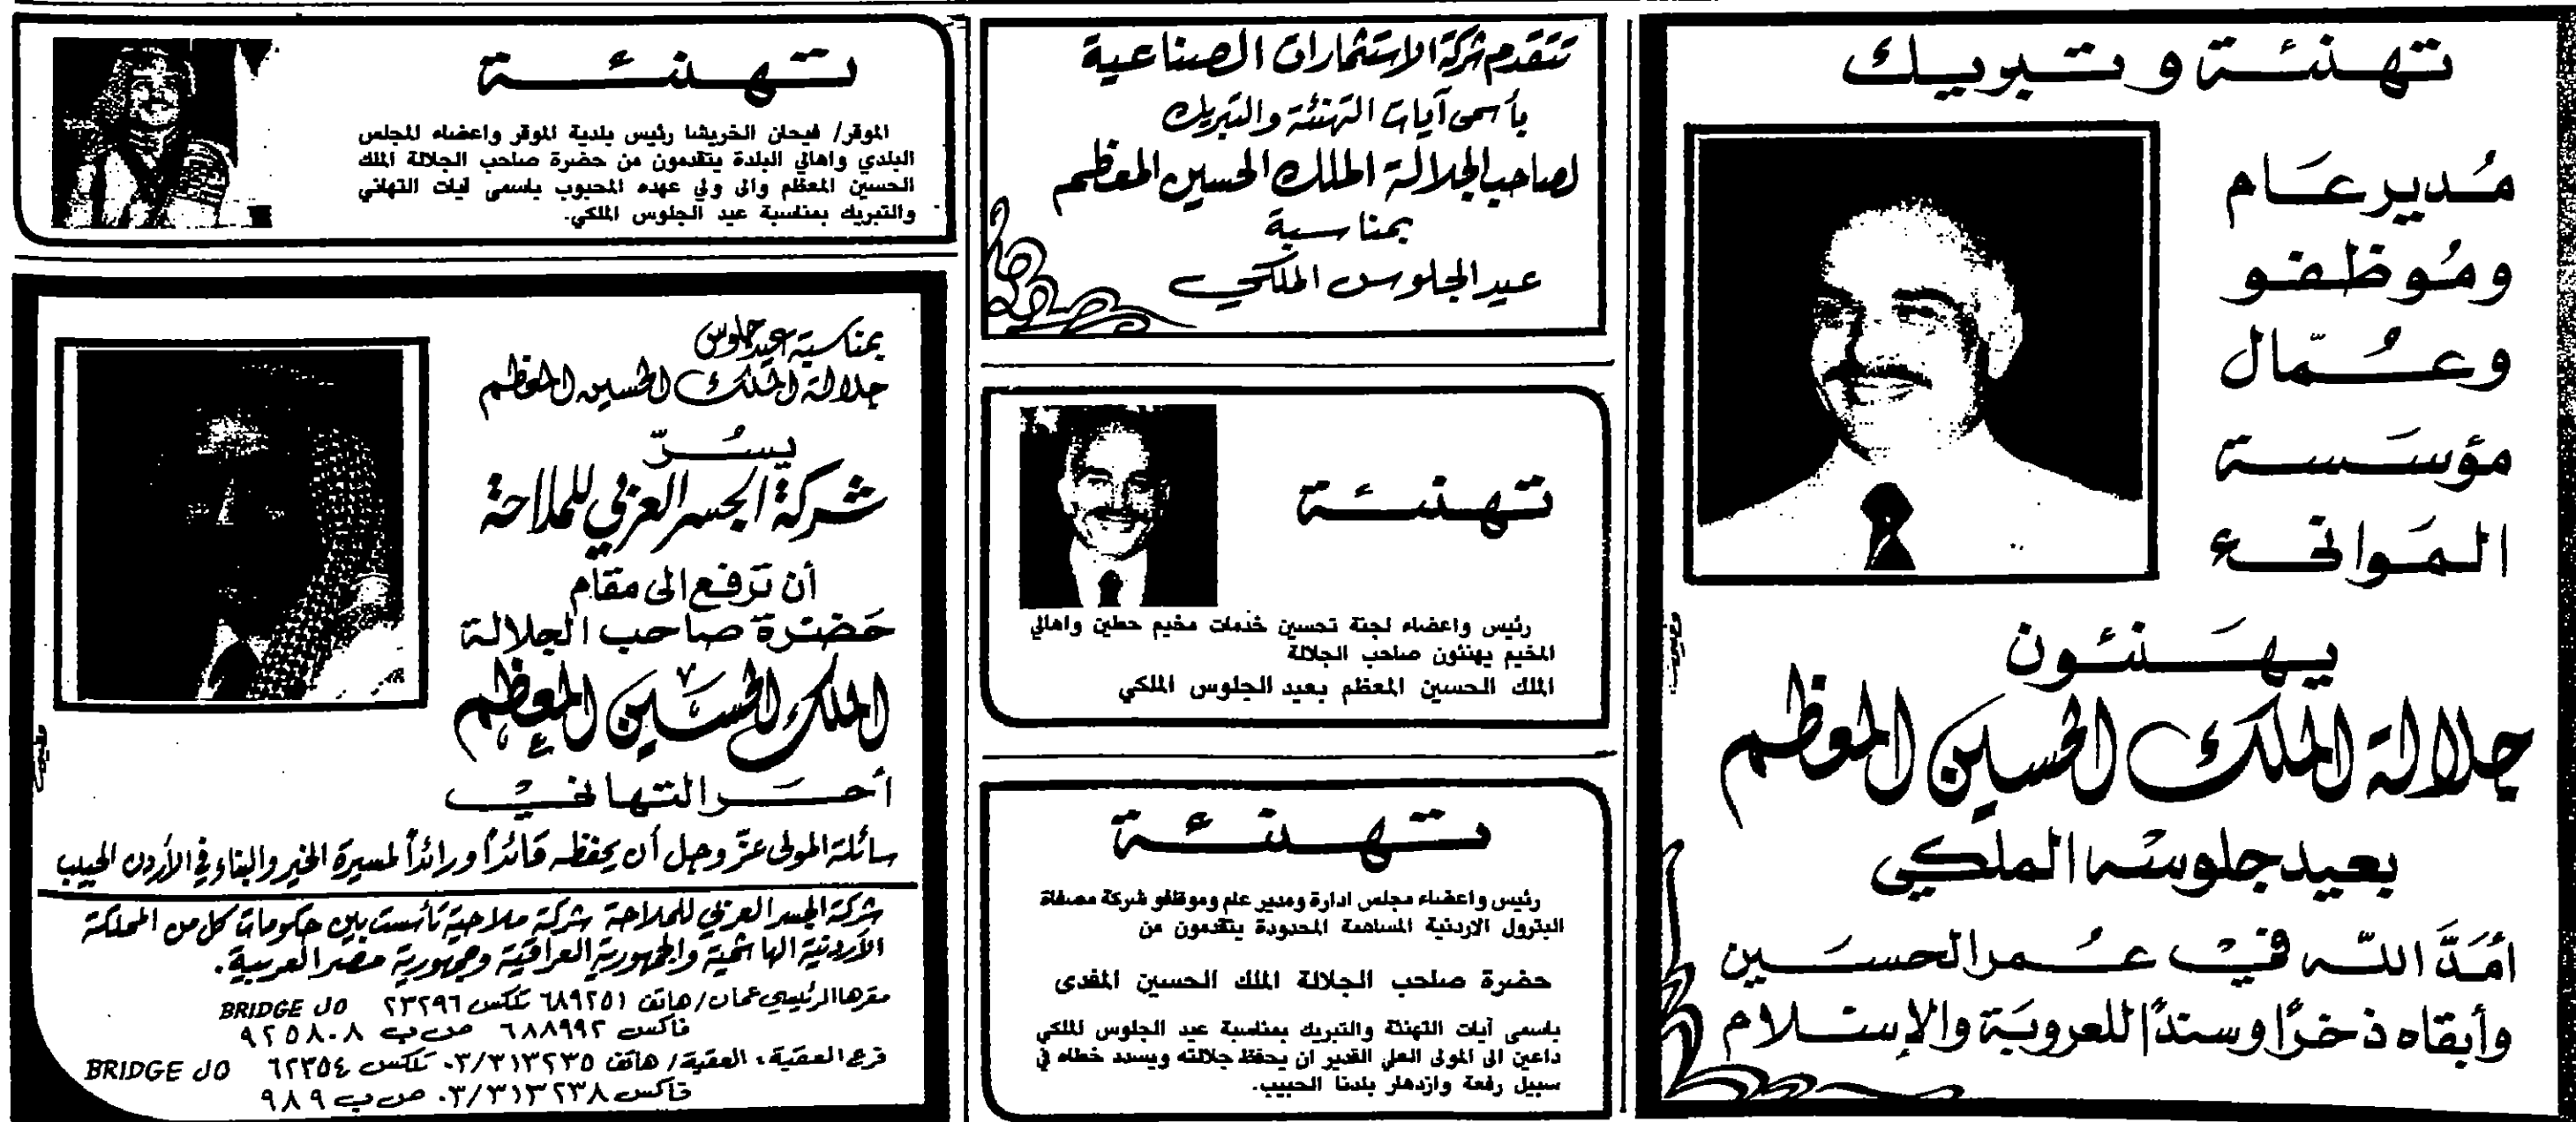 تهنئة وتبريك
مُدير عَام
ومُوظفو
وعُمّال
مؤسَسَة
المَوانىء
يهَنئون
جلالة الملك الحسين المعظم
بعيد جلوسه الملكي
أمَدَّ اللّه في عُمر الحسَين
وأبقاه ذخرًا وسندًا للعروبَة والإسلام
تتقدم شركة الاستثمارات الصناعية
بأسمى آيات التهنئة والتبريك
لصاحب الجلالة الملك الحسين المعظم
بمناسبة
عيد الجلوس الملكي
تهنئة
رئيس واعضاء لجنة تحسين خدمات مخيم حطين واهالي
المخيم يهنئون صاحب الجلالة
الملك الحسين المعظم بعيد الجلوس الملكي
تهنئة
رئيس واعضاء مجلس ادارة ومدير عام وموظفو شركة مصفاة
البترول الاردنية المساهمة المحدودة يتقدمون من
حضرة صاحب الجلالة الملك الحسين المفدى
باسمى آيات التهنئة والتبريك بمناسبة عيد الجلوس الملكي
داعين الى المولى العلي القدير ان يحفظ جلالته ويسدد خطاه في
سبيل رفعة وازدهار بلدنا الحبيب.
تهنئة
الموقر/ فيحان الخريشا رئيس بلدية الموقر واعضاء المجلس
البلدي واهالي البلدة يتقدمون من حضرة صاحب الجلالة الملك
الحسين المعظم والى ولي عهده المحبوب باسمى ايات التهاني
والتبريك بمناسبة عيد الجلوس الملكي.
بمناسبة عيد جلوس
جلالة الملك الحسين المعظم
يسُرّ
شركة الجسر العربي للملاحة
أن ترفع الى مقام
حَضرة صاحب الجلالة
الملك الحسَين المعظم
أحَر التهاني
سائلة المولى عزّ وجل أن يحفظه قائداً ورائداً لمسيرة الخير والبناء في الأردن الحبيب
شركة الجسر العربي للملاحة شركة ملاحية تأسست بين حكومات كل من المملكة
الأردنية الهاشمية والجمهورية العراقية وجمهورية مصر العربية.
مقرها الرئيسي عمان/ هاتف ٦٨٩٢٥١ تلكس ٢٣٢٩٦ BRIDGE JO
فاكس ٦٨٨٩٩٢ ص ب ٩٢٥٨٠٨
فرع العقبة، العقبة/ هاتف ٠٣/٣١٣٢٣٥ تلكس ٦٢٣٥٤ BRIDGE JO
فاكس ٠٣/٣١٣٢٣٨ ص ب ٩٨٩